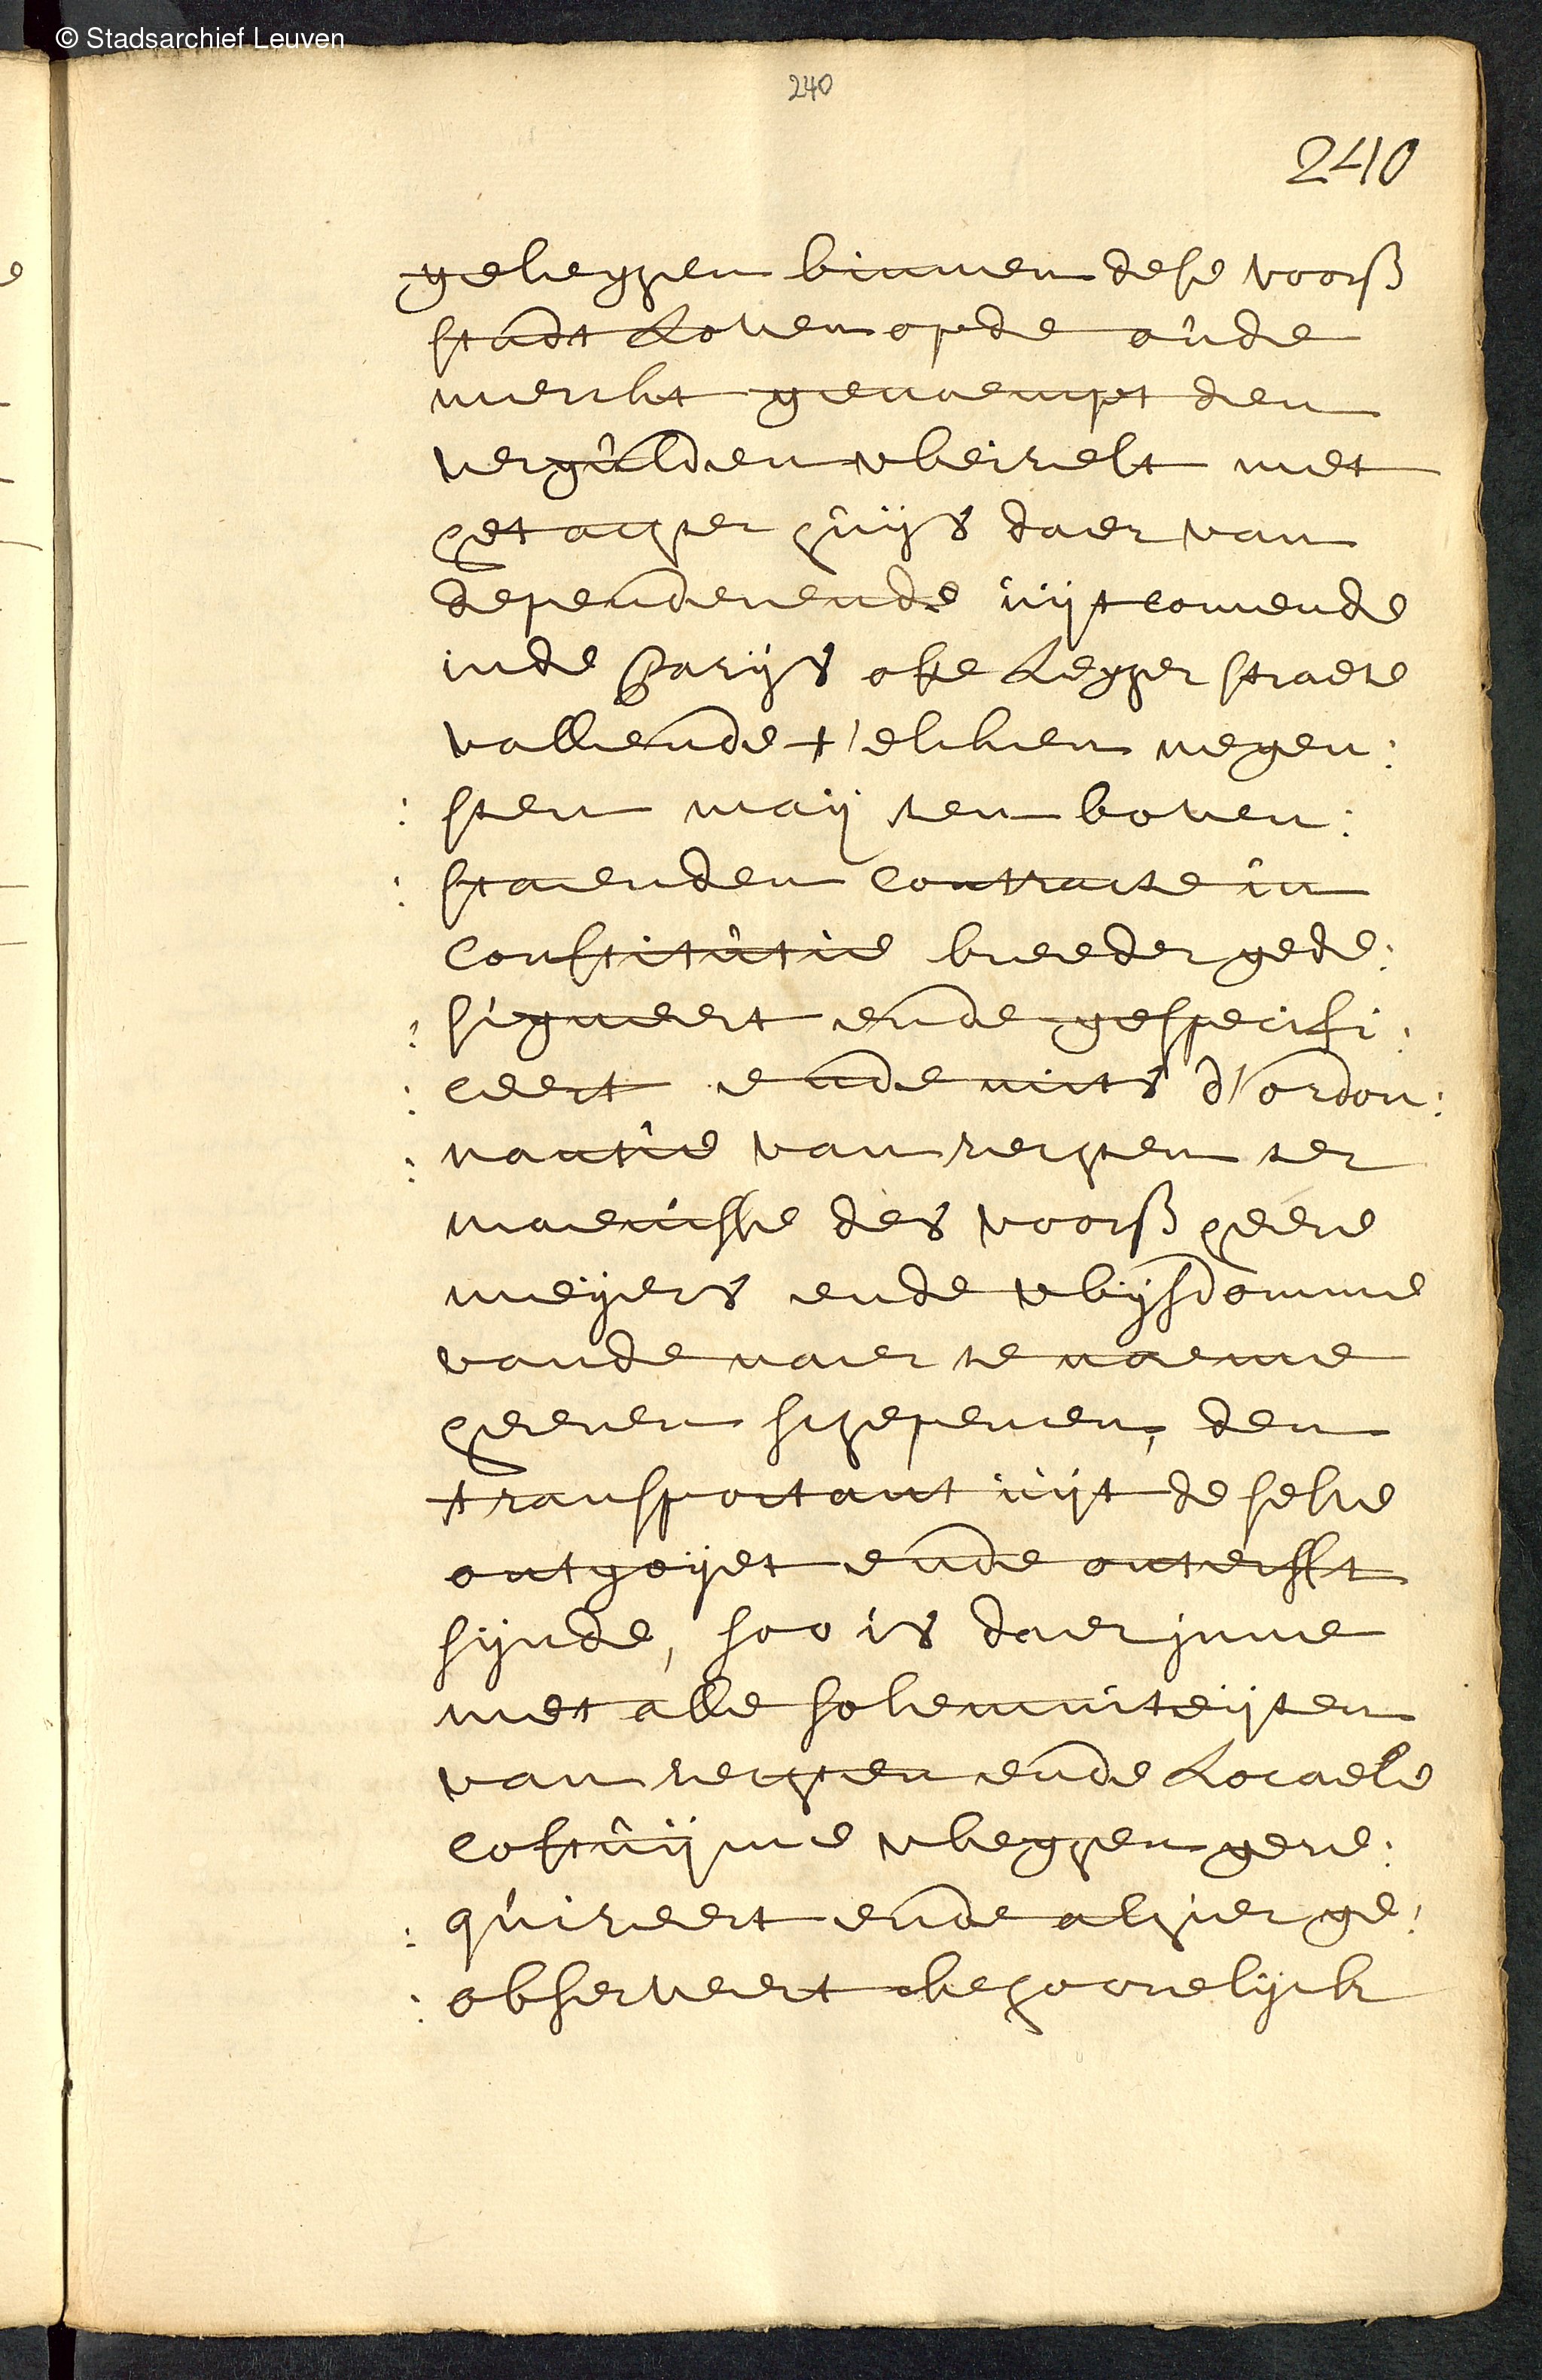 © Stadsarchief Leuven
240
240
geleghen binnen dese voorß
stadt Loven op de oude
merckt genaempt den
vergulden wereelt met
het achter huijs daer van
dependerende uijtcomende
inde Parijs ofte Legger straete
vallende t'elcken negen:
: sten maij ten boven:
: staenden contracte in
constitutie breeder gede:
: signeert ende gespecifi:
: ceert ende mits d'ordon:
: nantie van rechten ter
maenisse des voorß heere
meijers ende wijsdomme
vande naer te noeme
heeren schepenen, den
transportant uijt de selve
ontgoijet ende onterfft
sijnde, soo is daer inne
met alle solemniteijten
van rechten ende Locaele
costuijme weghen gere:
: quireert ende alhier ge:
: observeert behoorelijck